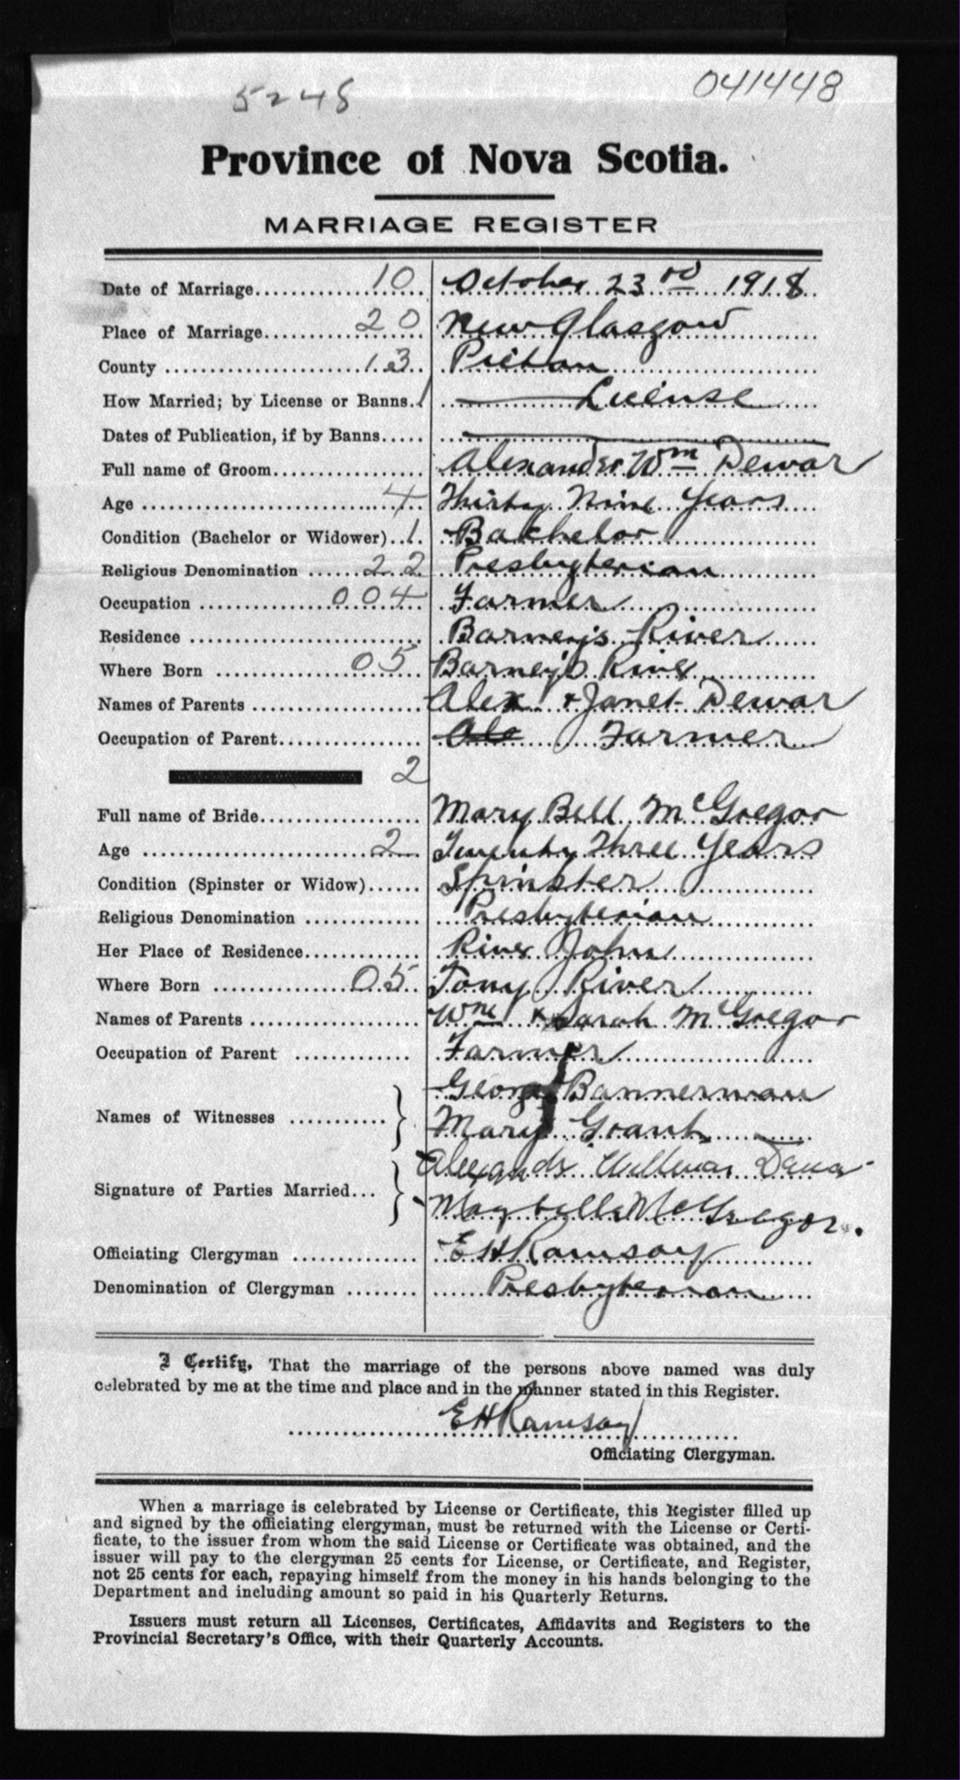 5248 041448
Province of Nova Scotia.
MARRIAGE REGISTER
Date of Marriage.......... 10 October 23rd 1918
Place of Marriage.......... 20 New Glasgow
County .......... 13 Pictou
How Married; by License or Banns. 1 License
Dates of Publication, if by Banns.....
Full name of Groom.......... Alexander Wm Dewar
Age .......... 4 Thirty Nine Years
Condition (Bachelor or Widower).. 1. Bachelor
Religious Denomination ...... 22 Presbyterian
Occupation .......... 004 Farmer
Residence .......... Barney's River
Where Born .......... 05 Barney's River
Names of Parents .......... Alex & Janet Dewar
Occupation of Parent.......... Ale Farmer
2
Full name of Bride.......... Mary Bell McGregor
Age .......... 2 Twenty Three Years
Condition (Spinster or Widow)...... Spinster
Religious Denomination .......... Presbyterian
Her Place of Residence.......... River John
Where Born .......... 05 Tony River
Names of Parents .......... Wm & Sarah McGregor
Occupation of Parent .......... Farmer
George Bannerman
Names of Witnesses ..........
Mary Grant
Alexander William Dewar
Signature of Parties Married...
Maybelle McGregor.
Officiating Clergyman .......... EH Ramsay
Denomination of Clergyman ........ Presbyterian
I Certify, That the marriage of the persons above named was duly
celebrated by me at the time and place and in the manner stated in this Register.
EH Ramsay
Officiating Clergyman.
When a marriage is celebrated by License or Certificate, this Register filled up
and signed by the officiating clergyman, must be returned with the License or Certi-
ficate, to the issuer from whom the said License or Certificate was obtained, and the
issuer will pay to the clergyman 25 cents for License, or Certificate, and Register,
not 25 cents for each, repaying himself from the money in his hands belonging to the
Department and including amount so paid in his Quarterly Returns.
Issuers must return all Licenses, Certificates, Affidavits and Registers to the
Provincial Secretary's Office, with their Quarterly Accounts.